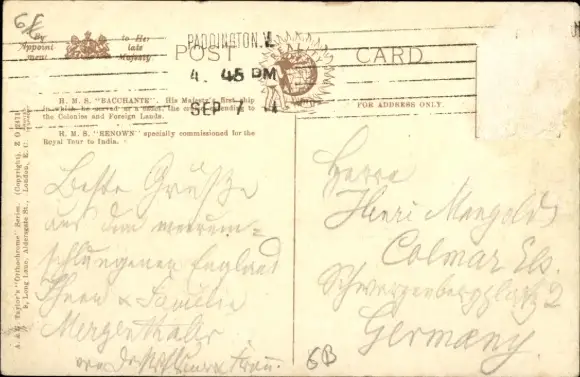 6B
By
Appoint
ment
to Her
late
Majesty
POST CARD
PADDINGTON.W.
4. 45 PM
SEP 4
FOR ADDRESS ONLY.
H. M. S. "BACCHANTE". His Majesty's first ship
in which he served as a cadet, the cruise extending to
the Colonies and Foreign Lands.
H. M. S. "RENOWN" specially commissioned for the
Royal Tour to India.
A. & G. Taylor's "Orthochrome" Series. (Copyright).
Long Lane, Aldersgate St., London, E. C.
Beste Grüße
aus dem meerum-
schlungenen England
Ihnen & Familie
Mergenthaler
von
Frau.
Herrn
Henri Mangold
Colmar Els.
2
Germany.
6B